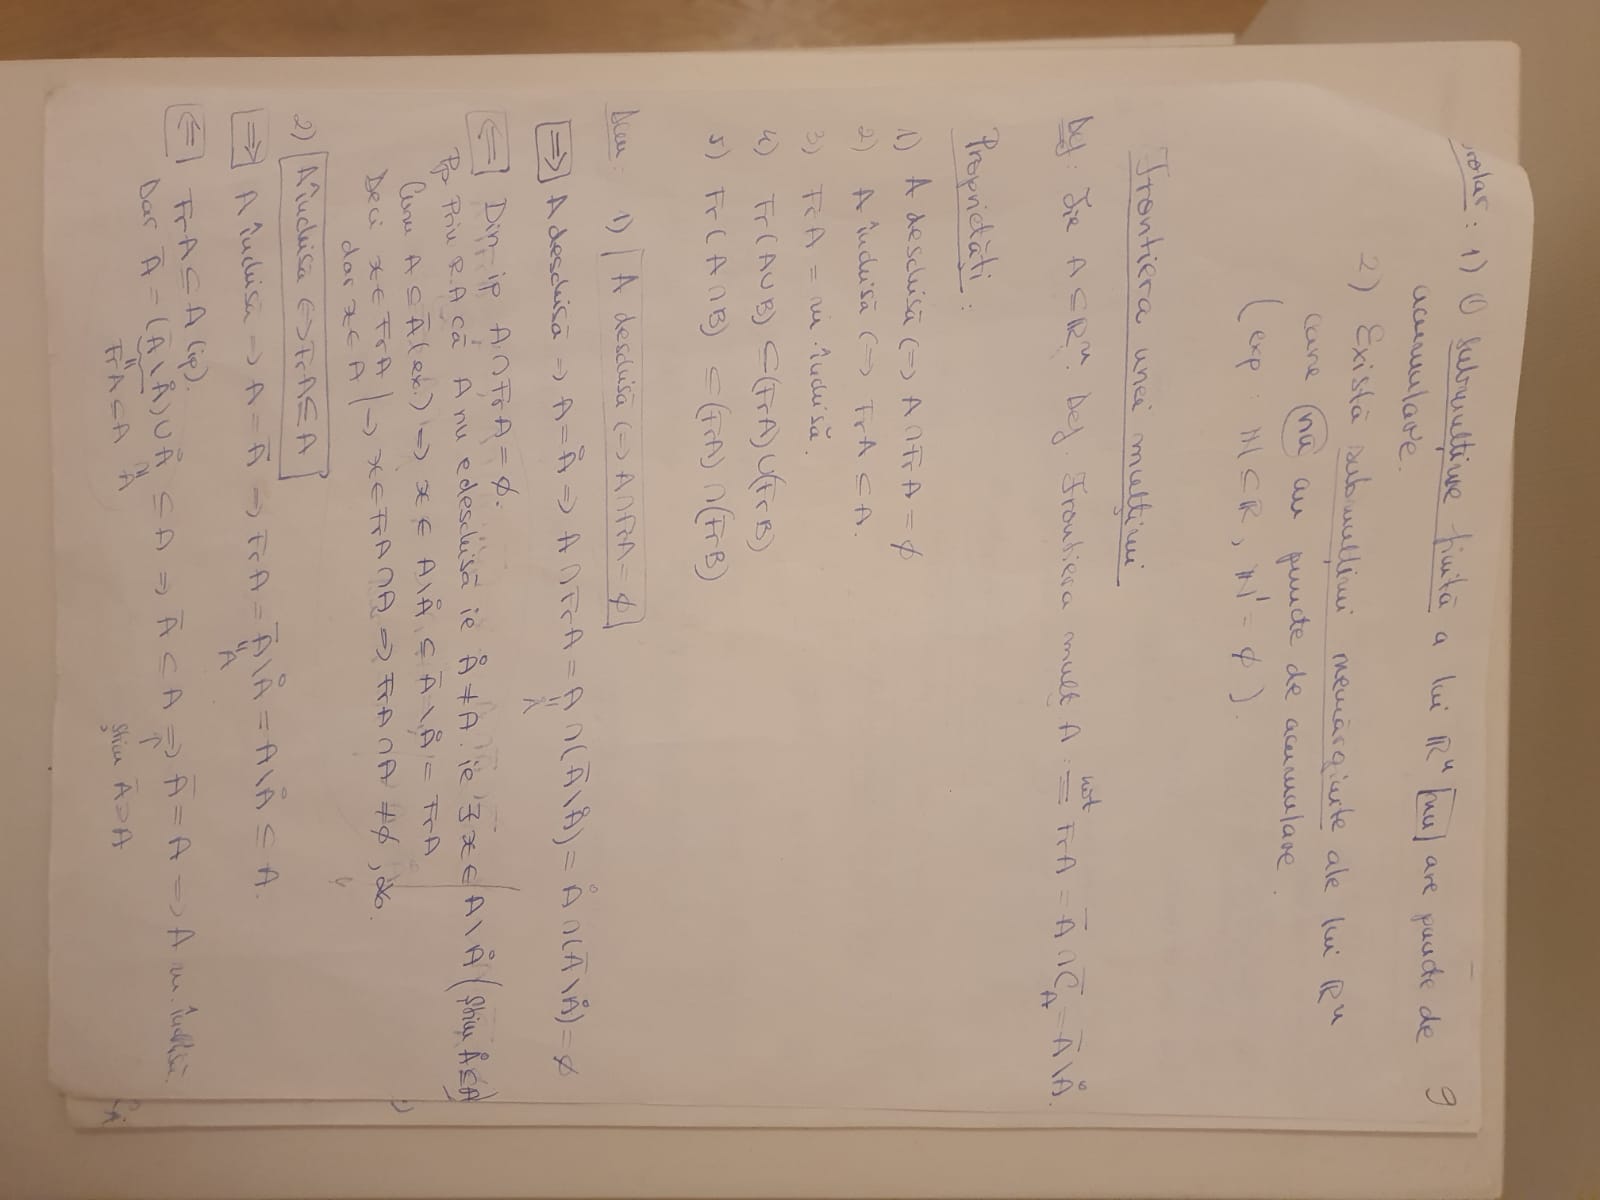 rolar: 1) O submulțime finită a lui ℝⁿ nu are puncte de
acumulare.
2) Există submulțimi nemărginite ale lui ℝⁿ
care nu au puncte de acumulare.
(exp: ℕ ⊆ ℝ, ℕ' = ∅).
9
Frontiera unei mulțimi
Def: Fie A ⊆ ℝⁿ. Def. Frontiera mult A :≡ not Fr A = A̅ ∩ C̅_A = A̅ \ Å.
Proprietăți:
1) A deschisă (=) A ∩ Fr A = ∅
2) A închisă (=) Fr A ⊆ A.
3) Fr A = m închisă.
4) Fr(A∪B) ⊆ (Fr A) ∪ (Fr B)
5) Fr(A∩B) ⊆ (Fr A) ∩ (Fr B)
Dem: 1) A deschisă (=) A ∩ Fr A = ∅
⇒ A deschisă ⇒ A = Å ⇒ A ∩ Fr A = A ∩ (A̅ \ Å) = Å ∩ (A̅ \ Å) = ∅
Å
⇐ Din ip A ∩ Fr A = ∅.
Pp. Prin R.A că A nu e deschisă ie Å ≠ A. ie ∃ x ∈ A \ Å (știm Å ⊆ A)
Cum A ⊆ A̅ (ex.) ⇒ x ∈ A \ Å ⊆ A̅ \ Å = Fr A
Deci x ∈ Fr A | ⇒ x ∈ Fr A ∩ A ⇒ Fr A ∩ A ≠ ∅, do.
dar x ∈ A
2) A închisă (=) Fr A ⊆ A
⇒ A închisă ⇒ A = A̅ ⇒ Fr A = A̅ \ Å = A \ Å ⊆ A.
A
⇐ Fr A ⊆ A (ip).
Dar A̅ = (A̅ \ Å) ∪ Å ⊆ A ⇒ A̅ ⊆ A ⇒ A̅ = A ⇒ A m. închisă.
Fr A ⊆ A A
știm A̅ ⊃ A